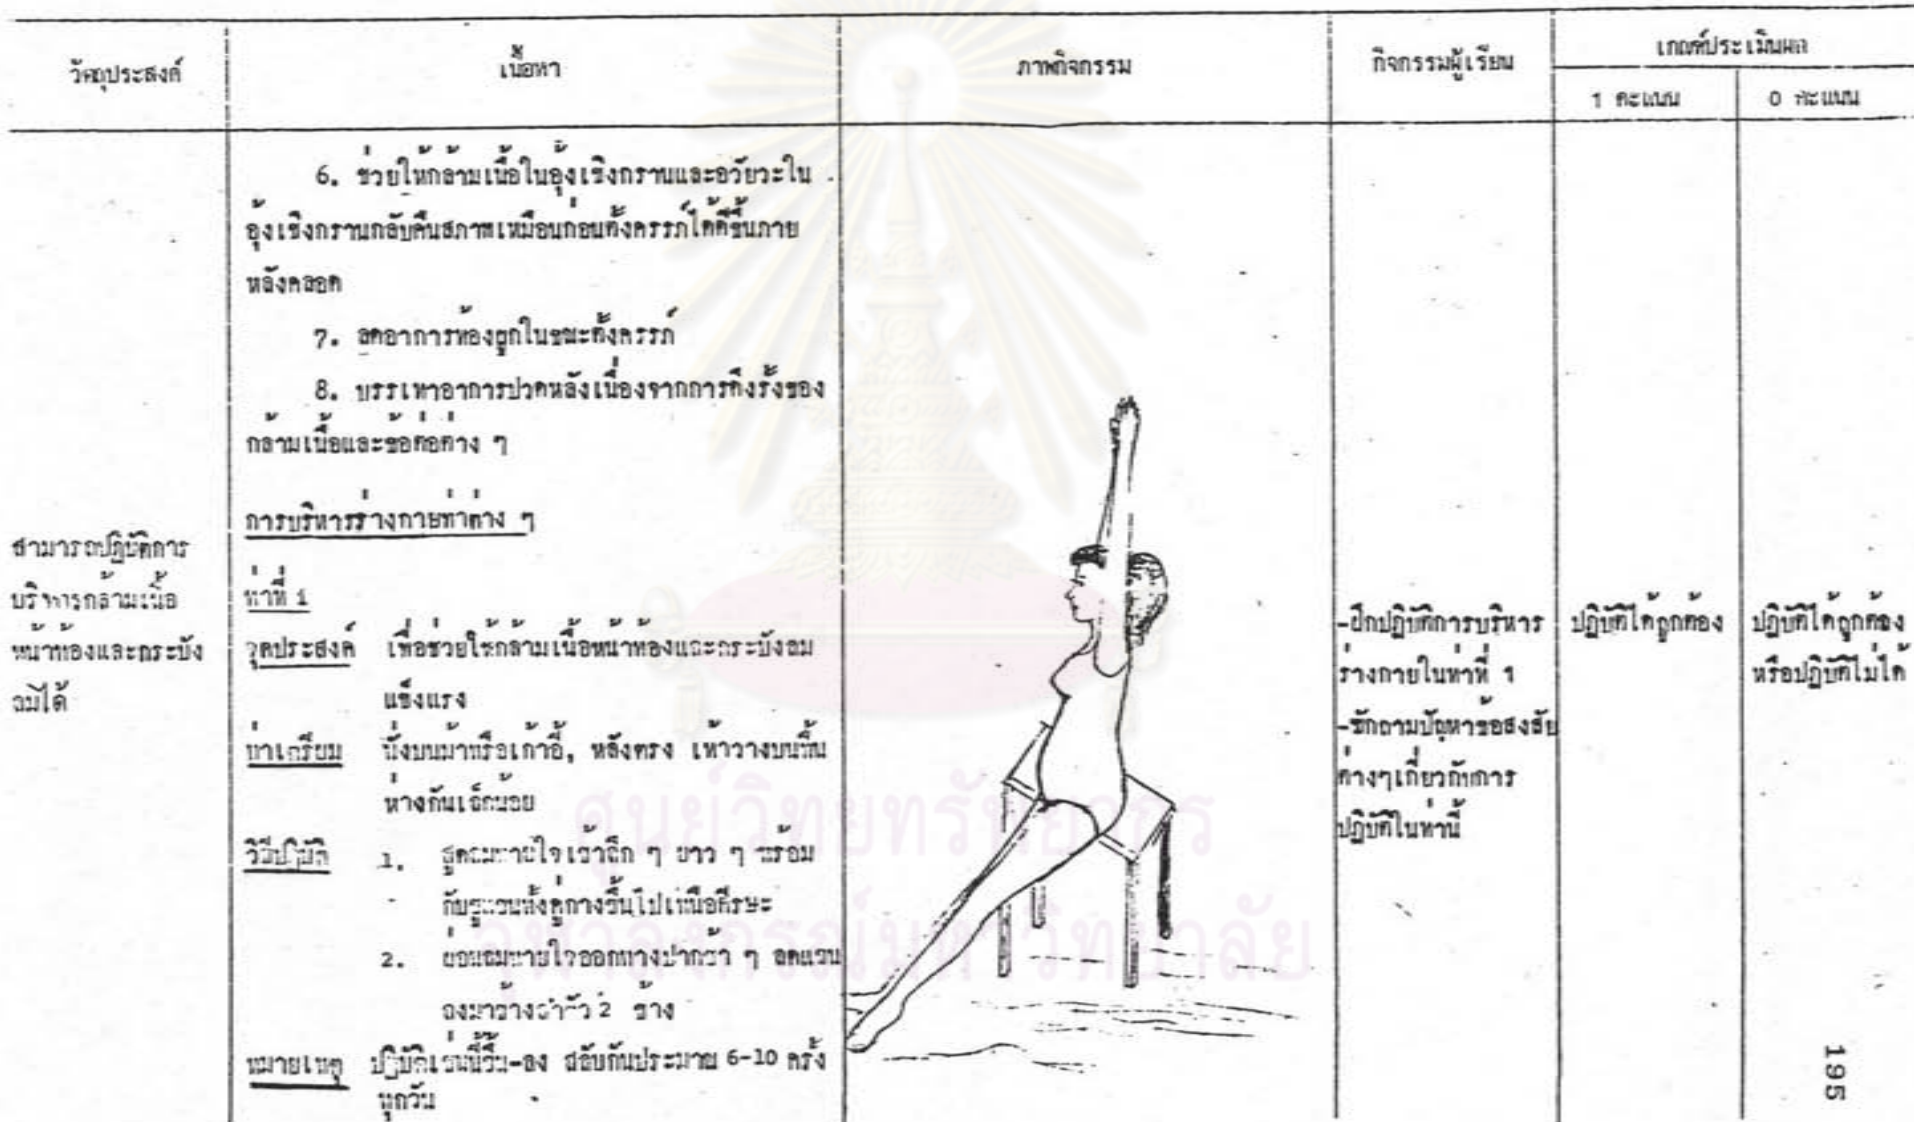 วัตถุประสงค์
เนื้อหา
ภาพกิจกรรม
กิจกรรมผู้เรียน
เกณฑ์ประเมินผล
1 คะแนน
0 คะแนน
6. ช่วยให้กล้ามเนื้อในอุ้งเชิงกรานและอวัยวะใน
อุ้งเชิงกรานกลับคืนสภาพเหมือนก่อนตั้งครรภ์ได้ดีขึ้นภาย
หลังคลอด
7. ลดอาการท้องผูกในขณะตั้งครรภ์
8. บรรเทาอาการปวดหลังเนื่องจากการดึงรั้งของ
กล้ามเนื้อและข้อต่อต่าง ๆ
การบริหารร่างกายท่าต่าง ๆ
สามารถปฏิบัติการ
บริหารกล้ามเนื้อ
หน้าท้องและกระบัง
ลมได้
ท่าที่ 1
จุดประสงค์ เพื่อช่วยให้กล้ามเนื้อหน้าท้องและกระบังลม
แข็งแรง
ท่าเตรียม นั่งบนม้าหรือเก้าอี้, หลังตรง เท้าวางบนพื้น
ห่างกันเล็กน้อย
วิธีปฏิบัติ 1. สูดลมหายใจเข้าลึก ๆ ยาว ๆ พร้อม
กับชูแขนทั้งคู่กางขึ้นไปเหนือศีรษะ
2. ผ่อนลมหายใจออกทางปากช้า ๆ ลดแขน
ลงมาข้างลำตัว 2 ข้าง
หมายเหตุ ปฏิบัติเช่นนี้ขึ้น-ลง สลับกันประมาณ 6-10 ครั้ง
ทุกวัน
-ฝึกปฏิบัติการบริหาร
ร่างกายในท่าที่ 1
-ซักถามปัญหาข้อสงสัย
ต่างๆเกี่ยวกับการ
ปฏิบัติในท่านี้
ปฏิบัติได้ถูกต้อง
ปฏิบัติได้ถูกต้อง
หรือปฏิบัติไม่ได้
ศูนย์วิทยทรัพยากร
จุฬาลงกรณ์มหาวิทยาลัย
195